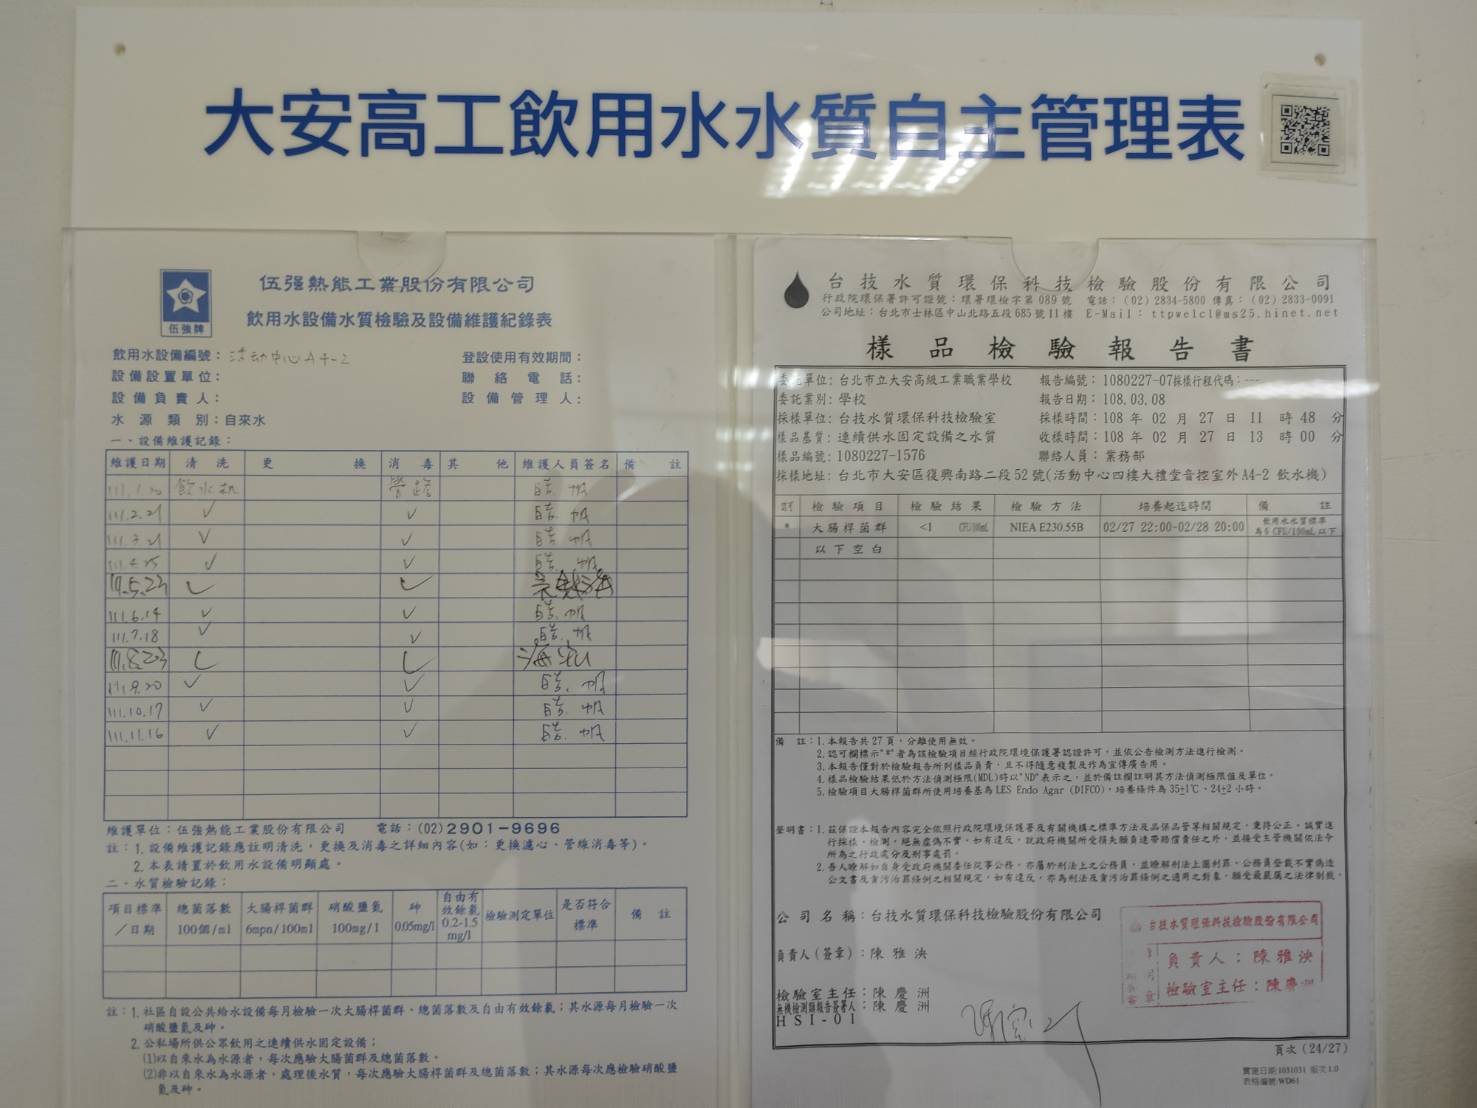 大安高工飲用水水質自主管理表
伍强熱能工業股份有限公司
飲用水設備水質檢驗及設備維護紀錄表
伍強牌
飲用水設備編號：活動中心A4-2
登設使用有效期間：
設備設置單位：
聯絡電話：
設備負責人：
設備管理人：
水源類別：自來水
一、設備維護記錄：
維護日期 清洗 更換 消毒 其他 維護人員簽名 備註
111.1.20 飲水机 管路
111.2.21 ✓ ✓
111.3.21 ✓ ✓
111.4.25 ✓ ✓
111.5.23 ✓ ✓
111.6.14 ✓ ✓
111.7.18 ✓ ✓
111.8.23 ✓ ✓
111.9.20 ✓ ✓
111.10.17 ✓ ✓
111.11.16 ✓ ✓
維護單位：伍強熱能工業股份有限公司 電話：(02)2901-9696
註：1.設備維護記錄應註明清洗，更換及消毒之詳細內容(如：更換濾心、管線消毒等)。
2.本表請置於飲用水設備明顯處。
二、水質檢驗記錄：
項目標準／日期 總菌落數 100個/ml 大腸桿菌群 6mpn/100ml 硝酸鹽氮 100mg/l 砷 0.05mg/l 自由有效餘氯 0.2-1.5 mg/l 檢驗測定單位 是否符合標準 備註
註：1.社區自設公共給水設備每月檢驗一次大腸桿菌群、總菌落數及自由有效餘氯；其水源每月檢驗一次
硝酸鹽氮及砷。
2.公私場所供公眾飲用之連續供水固定設備；
(1)以自來水為水源者，每次應驗大腸菌群及總菌落數。
(2)非以自來水為水源者，處理後水質，每次應驗大腸桿菌群及總菌落數；其水源每次應檢驗硝酸鹽
氮及砷。
台技水質環保科技檢驗股份有限公司
行政院環保署許可證號：環署環檢字第089號 電話：(02)2834-5800 傳真：(02)2833-0091
公司地址：台北市士林區中山北路五段685號11樓 E-Mail：ttpwelcl@ms25.hinet.net
樣品檢驗報告書
委託單位：台北市立大安高級工業職業學校 報告編號：1080227-07採樣行程代碼：---
委託業別：學校 報告日期：108.03.08
採樣單位：台技水質環保科技檢驗室 採樣時間：108年02月27日11時48分
樣品基質：連續供水固定設備之水質 收樣時間：108年02月27日13時00分
樣品編號：1080227-1576 聯絡人員：業務部
採樣地址：台北市大安區復興南路二段52號(活動中心四樓大禮堂音控室外A4-2 飲水機)
檢驗項目 檢驗結果 檢驗方法 培養起迄時間 備註
* 大腸桿菌群 <1 CFU/100mL NIEA E230.55B 02/27 22:00-02/28 20:00 飲用水水質標準為6 CFU/100mL以下
以下空白
備註：1.本報告共27頁，分離使用無效。
2.認可欄標示"*"者為該檢驗項目經行政院環境保護署認證許可，並依公告檢測方法進行檢測。
3.本報告僅對於檢驗報告所列樣品負責，且不得隨意複製及作為宣傳廣告用。
4.樣品檢驗結果低於方法偵測極限(MDL)時以"ND"表示之，並於備註欄註明其方法偵測極限值及單位。
5.檢驗項目大腸桿菌群所使用培養基為LES Endo Agar (DIFCO)，培養條件為35±1℃、24±2小時。
聲明書：1.茲保證本報告內容完全依照行政院環境保護署及有關機構之標準方法及品保品管等相關規定，秉持公正、誠實進
行採樣、檢測，絕無虛偽不實，如有違反，就政府機關所受損失願負連帶賠償責任之外，並接受主管機關依法令
所為之行政處分及刑事處罰。
2.吾人瞭解如自身受政府機關委任從事公務，亦屬於刑法上之公務員，並瞭解刑法上圖利罪、公務員登載不實偽造
公文書及貪污治罪條例之相關規定，如有違反，亦為刑法及貪污治罪條例之適用之對象，願受最嚴厲之法律制裁。
公司名稱：台技水質環保科技檢驗股份有限公司
負責人(簽章)：陳雅泱
檢驗室主任：陳慶洲
無機檢測類報告簽署人：陳慶洲
HSI-01
台技水質環保科技檢驗股份有限公司
負責人：陳雅泱
檢驗室主任：陳慶洲
頁次(24/27)
實施日期 1031031 版次 1.0
表格編號 WD61